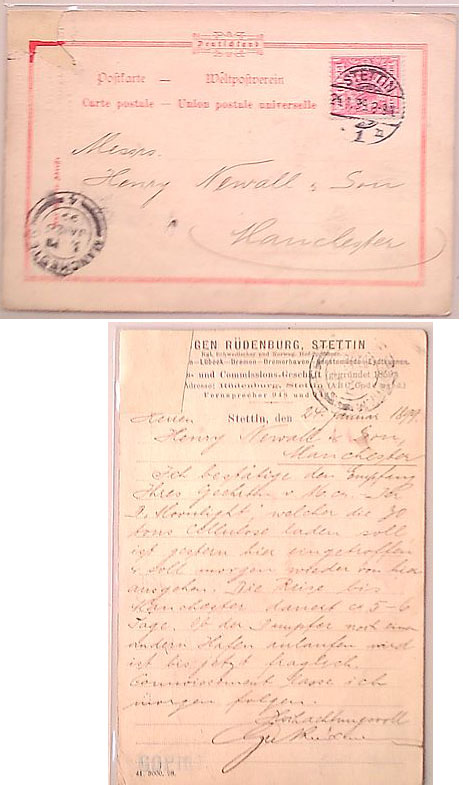 Deutschland
Postkarte — Weltpostverein
Carte postale — Union postale universelle
STETTIN
1 n
Messrs.
Henry Newall & Son
Manchester
MANCHESTER
GEN RÜDENBURG, STETTIN
Kgl. Schwedischer und Norweg.
Lübeck—Bremen—Bremerhaven
und Commissions-Geschäft (gegründet 1859)
Rüdenburg, Stettin
Fernsprecher 948 und
Stettin, den 24. Januar 1899.
Herren
Henry Newall & Son,
Manchester
Ich bestätige den Empfang
Ihres v. M. cr.
"Moonlight", welcher die 30
tons Cellulose laden soll
ist gestern hier eingetroffen
& soll morgen wieder von hier
ausgehen. Die Reise bis
Manchester dauert ca 5-6
Tage. Ob der Dampfer noch einen
andern Hafen anlaufen wird
ist bis jetzt fraglich.
Connossement lasse ich
morgen folgen.
Hochachtungsvoll
41. 5000. 98.